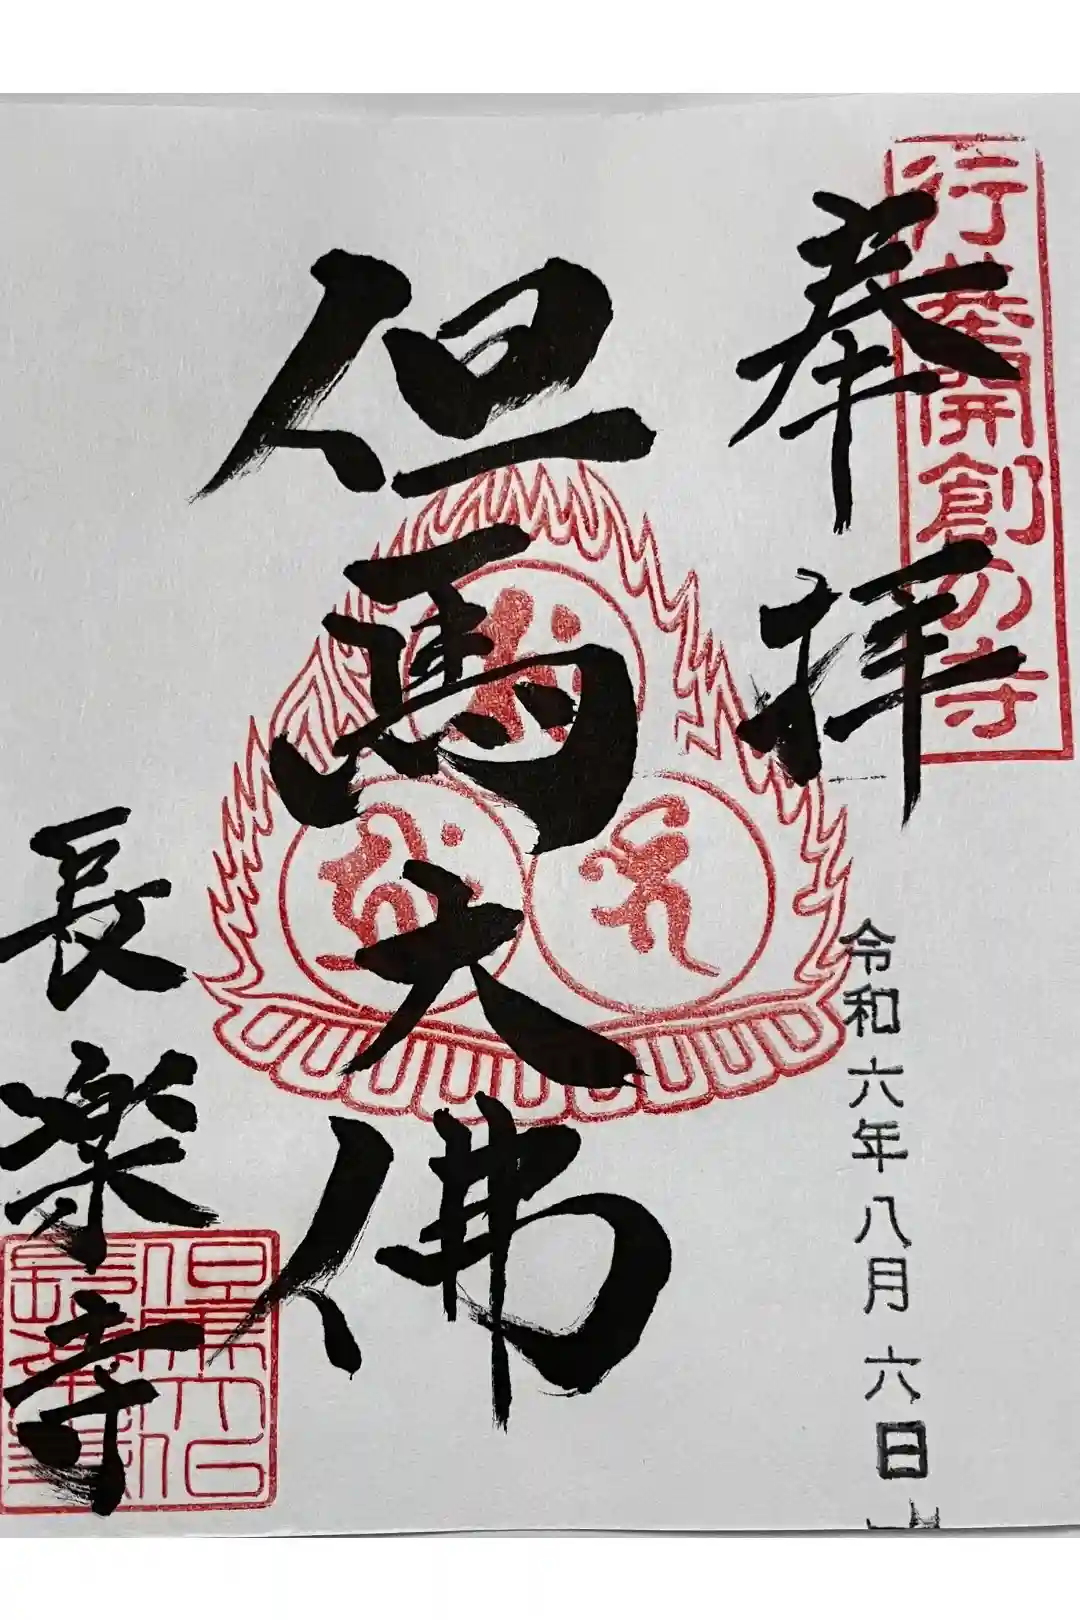 行基開創の寺
奉拝
令和六年八月六日
但馬大佛
長楽寺